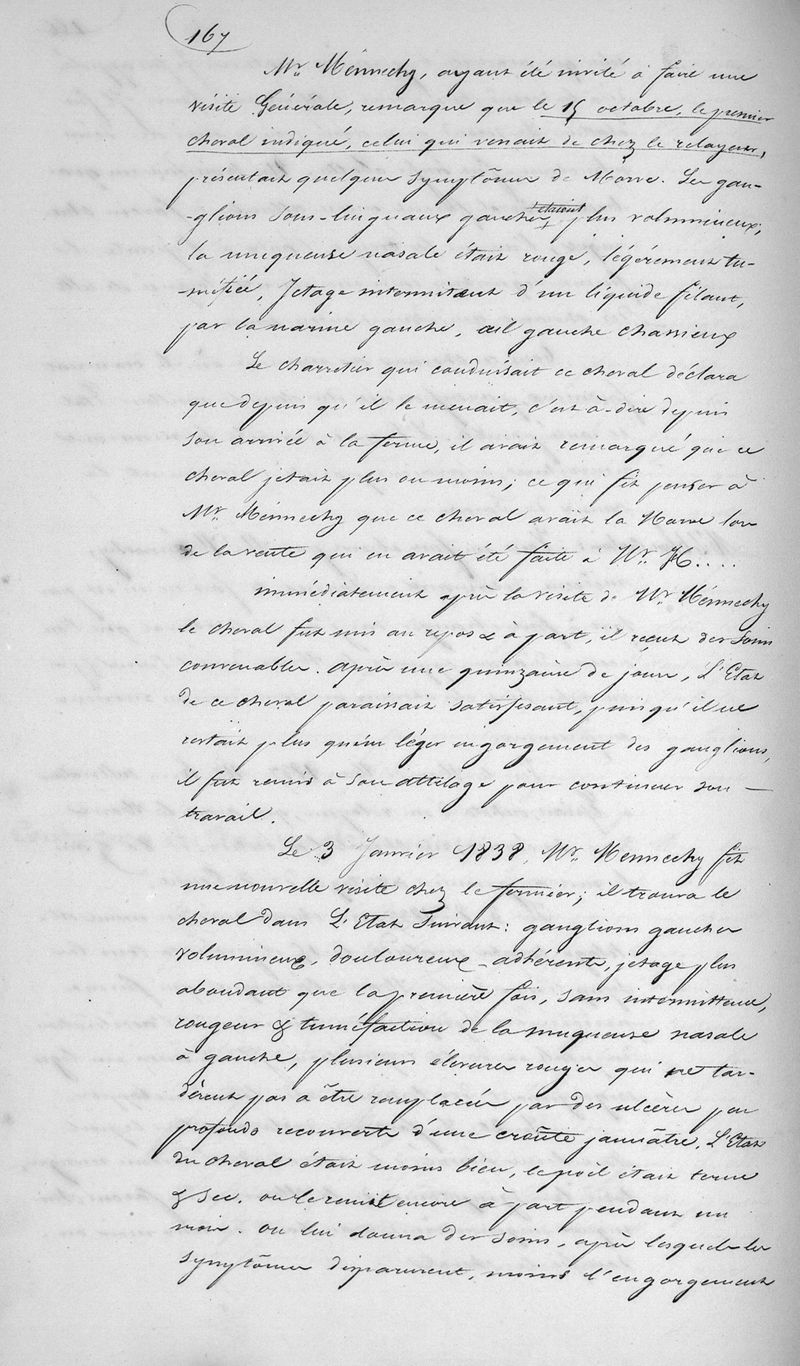 167
Mr. Ménnechy, ayant été invité à faire une
visite Générale, remarque que le 15 octobre, le premier
cheval indiqué, celui qui venait de chez le relayeur,
présentait quelques symptômes de Morve. Les gan-
-glions sous-linguaux gauches étaient plus volumineux,
la muqueuse nasale était rouge, légérement tu-
-méfiée, Jetage intermitent d'un liquide filant,
par la narine gauche, œil gauche chassieux
Le charretier qui conduisait ce cheval déclara
que depuis qu'il le menait, c'est-à-dire depuis
son arrivée à la ferme, il avait remarqué que ce
cheval jetait plus ou moins; ce qui fit penser à
Mr. Ménnechy que ce cheval avait la Morve lors
de la vente qui en avait été faite à Mr. H....
immédiatement après la visite de Mr. Ménnechy
le cheval fut mis au repos & à part, il reçut des soins
convenables. Après une quinzaine de jours, L'Etat
de ce cheval paraissait satisfesant, puisqu'il ne
restait plus qu'un léger engorgement des ganglions,
il fut remis à son attelage pour continuer son
travail.
Le 3 Janvier 1838, Mr. Mennechy fit
une nouvelle visite chez le fermier; il trouva le
cheval dans L'Etat suivant: ganglions gauches
volumineux, douloureux - adhérents, jetage plus
abondant que la première fois, sans intermittence,
rougeur & tuméfaction de la muqueuse nasale
à gauche, plusieurs élevures rouges qui ne tar-
dèrent pas à être remplacées par des ulcères peu
profonds recouverts d'une croûte jaunâtre. L'Etat
du cheval était moins bien, le poil était terne
& sec. on le remit encore à part pendant un
mois. on lui donna des soins, après lesquels les
symptômes disparurent, moins l'engorgement